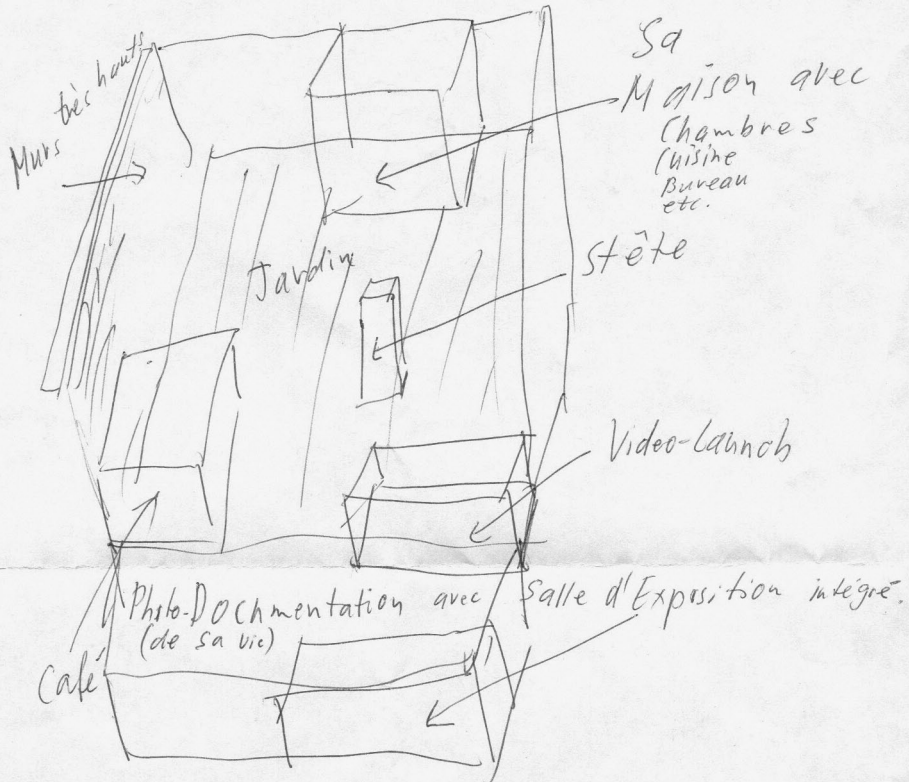 Murs
très hauts
Sa
Maison avec
Chambres
Cuisine
Bureau
etc.
Jardin
Stête
Video-Launch
Photo-Dochmentation avec Salle d'Exposition intégré.
(de sa vie)
Café